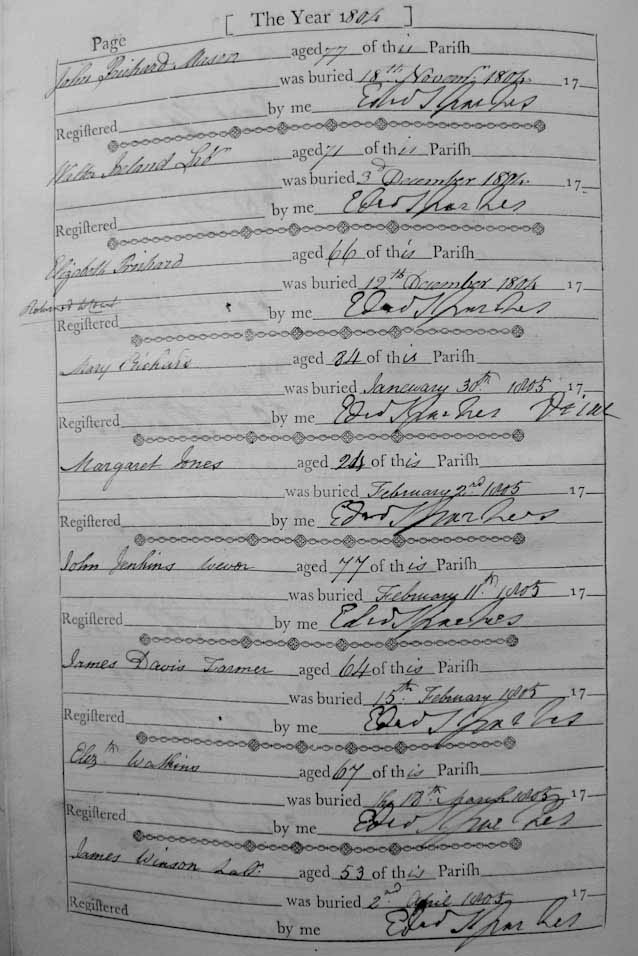 [ The Year 1804 ]
Page
John Prichard Mason aged 77 of this Parish
was buried 18th Novemr 1804 17
by me Edwd Sparkes
Registered
Walter Ireland Labr aged 71 of this Parish
was buried 3d December 1804 17
by me Edwd Sparkes
Registered
Elizabeth Prichard aged 66 of this Parish
was buried 12th December 1804 17
Registered by me Edwd Sparkes
Mary Prichard aged 84 of this Parish
was buried Janewary 30th 1805 17
Registered by me Edwd Sparkes
Margaret Jones aged 24 of this Parish
was buried February 2nd 1805 17
Registered by me Edwd Sparkes
John Jenkins wever aged 77 of this Parish
was buried February 11th 1805 17
Registered by me Edwd Sparkes
James Davis Farmer aged 64 of this Parish
was buried 15th February 1805 17
Registered by me Edwd Sparkes
Elizth Watkins aged 67 of this Parish
was buried the 18th March 1805 17
Registered by me Edwd Sparkes
James Winson Labr aged 53 of this Parish
was buried 2nd April 1805 17
Registered by me Edwd Sparkes